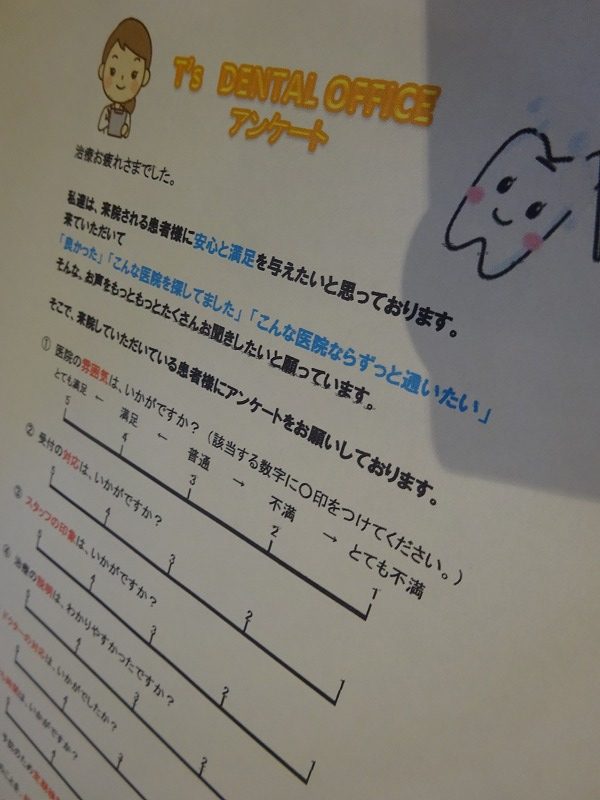 T's DENTAL OFFICE
アンケート
治療お疲れさまでした。
私達は、来院される患者様に安心と満足を与えたいと思っております。
来ていただいて
「良かった」「こんな医院を探してました」「こんな医院ならずっと通いたい」
そんな、お声をもっともっとたくさんお聞きしたいと願っています。
そこで、来院していただいている患者様にアンケートをお願いしております。
① 医院の雰囲気は、いかがですか？（該当する数字に〇印をつけてください。）
とても満足 ← 満足 ← 普通 → 不満 → とても不満
5 4 3 2 1
② 受付の対応は、いかがですか？
5 4 3 2 1
③ スタッフの印象は、いかがですか？
5 4 3 2 1
④ 治療の説明は、わかりやすかったですか？
5 4 3 2
ドクターの対応は、いかがでしたか？
5 4 3
は、いかがですか？